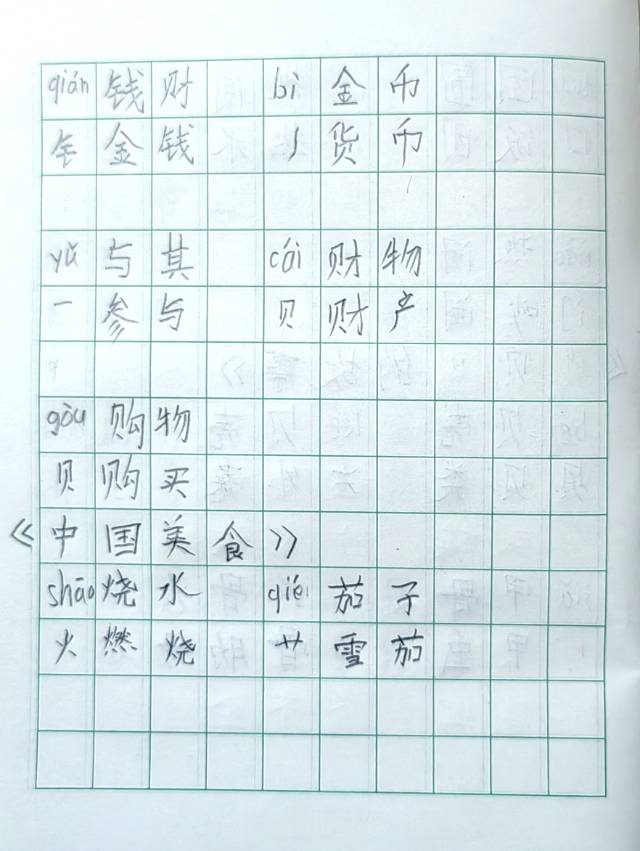 qián 钱财 bì 金币
钅 金钱 丿 货币
yǔ 与其 cái 财物
一 参与 贝 财产
gòu 购物
贝 购买
《中国美食》
shāo 烧水 qié 茄子
火 燃烧 艹 雪茄